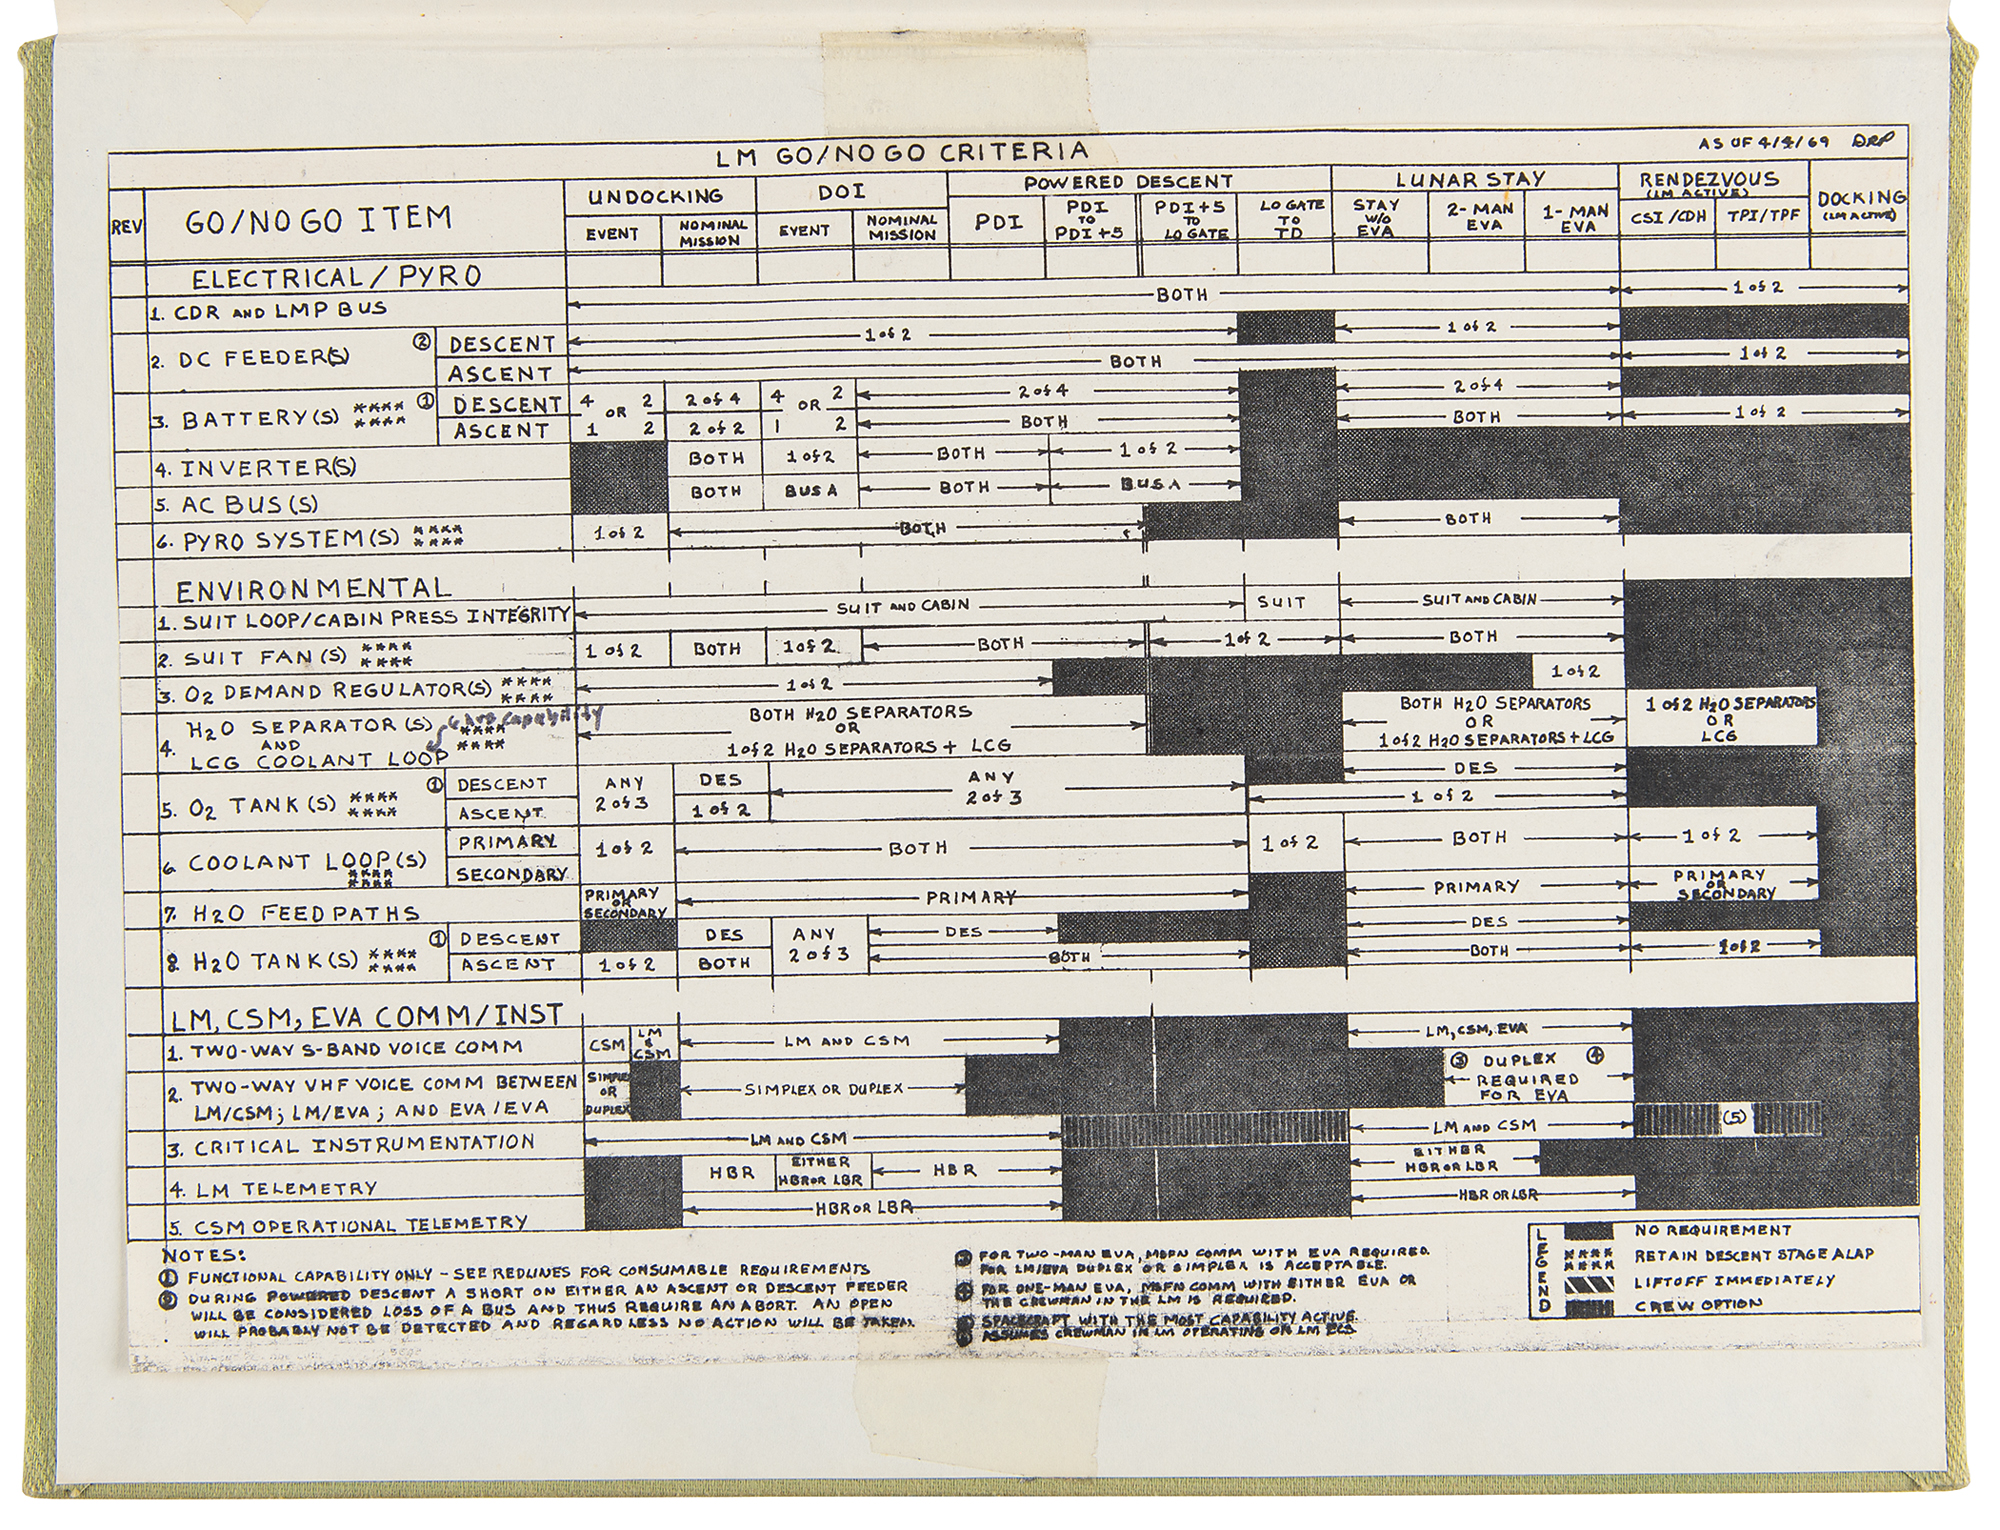 LM GO/NO GO CRITERIA
AS OF 4/4/69 DRP
REV
GO/NO GO ITEM
UNDOCKING
DOI
POWERED DESCENT
LUNAR STAY
RENDEZVOUS
(LM ACTIVE)
DOCKING
(LM ACTIVE)
EVENT
NOMINAL
MISSION
EVENT
NOMINAL
MISSION
PDI
PDI
TO
PDI +5
PDI+5
TO
LO GATE
LO GATE
TO
TD
STAY
W/O
EVA
2-MAN
EVA
1-MAN
EVA
CSI/CDH
TPI/TPF
ELECTRICAL/PYRO
1. CDR AND LMP BUS
BOTH
1 of 2
2. DC FEEDER(S)
②
DESCENT
1 of 2
1 of 2
ASCENT
BOTH
1 of 2
3. BATTERY(S) ****
****
①
DESCENT
4 OR 2
2 of 4
4 OR 2
2 of 4
2 of 4
ASCENT
1 2
2 of 2
1 2
BOTH
BOTH
1 of 2
4. INVERTER(S)
BOTH
1 of 2
BOTH
1 of 2
5. AC BUS(S)
BOTH
BUS A
BOTH
BUS A
6. PYRO SYSTEM(S) ****
****
1 of 2
BOTH
BOTH
ENVIRONMENTAL
1. SUIT LOOP/CABIN PRESS INTEGRITY
SUIT AND CABIN
SUIT
SUIT AND CABIN
2. SUIT FAN(S) ****
****
1 of 2
BOTH
1 of 2
BOTH
1 of 2
BOTH
3. O2 DEMAND REGULATOR(S) ****
****
1 of 2
1 of 2
4. H2O SEPARATOR(S)
AND
LCG COOLANT LOOP
****
****
capability
BOTH H2O SEPARATORS
OR
1 of 2 H2O SEPARATORS + LCG
BOTH H2O SEPARATORS
OR
1 of 2 H2O SEPARATORS + LCG
1 of 2 H2O SEPARATORS
OR
LCG
5. O2 TANK(S) ****
****
①
DESCENT
ASCENT
ANY
2 of 3
DES
1 of 2
ANY
2 of 3
DES
1 of 2
6. COOLANT LOOP(S)
****
****
PRIMARY
SECONDARY
1 of 2
BOTH
1 of 2
BOTH
1 of 2
7. H2O FEEDPATHS
PRIMARY
OR
SECONDARY
PRIMARY
PRIMARY
PRIMARY
OR
SECONDARY
8. H2O TANK(S) ****
****
①
DESCENT
DES
ANY
2 of 3
DES
DES
ASCENT
1 of 2
BOTH
BOTH
BOTH
1 of 2
LM, CSM, EVA COMM/INST
1. TWO-WAY S-BAND VOICE COMM
CSM
LM
&
CSM
LM AND CSM
LM, CSM, EVA
2. TWO-WAY VHF VOICE COMM BETWEEN
LM/CSM; LM/EVA; AND EVA/EVA
SIMPLEX
OR
DUPLEX
SIMPLEX OR DUPLEX
③ DUPLEX ④
REQUIRED
FOR EVA
3. CRITICAL INSTRUMENTATION
LM AND CSM
LM AND CSM
(5)
4. LM TELEMETRY
HBR
EITHER
HBR OR LBR
HBR
EITHER
HBR OR LBR
5. CSM OPERATIONAL TELEMETRY
HBR OR LBR
HBR OR LBR
NOTES:
① FUNCTIONAL CAPABILITY ONLY - SEE REDLINES FOR CONSUMABLE REQUIREMENTS
② DURING POWERED DESCENT A SHORT ON EITHER AN ASCENT OR DESCENT FEEDER
WILL BE CONSIDERED LOSS OF A BUS AND THUS REQUIRE AN ABORT. AN OPEN
WILL PROBABLY NOT BE DETECTED AND REGARDLESS NO ACTION WILL BE TAKEN.
③ FOR TWO-MAN EVA, MSFN COMM WITH EVA REQUIRED.
FOR LM/EVA DUPLEX OR SIMPLEX IS ACCEPTABLE.
④ FOR ONE-MAN EVA, MSFN COMM WITH EITHER EVA OR
THE CREWMAN IN THE LM IS REQUIRED.
SPACECRAFT WITH THE MOST CAPABILITY ACTIVE.
ASSUMES CREWMAN IN LM OPERATING ON LM ECS
LEGEND
NO REQUIREMENT
****
****
RETAIN DESCENT STAGE ALAP
LIFTOFF IMMEDIATELY
CREW OPTION